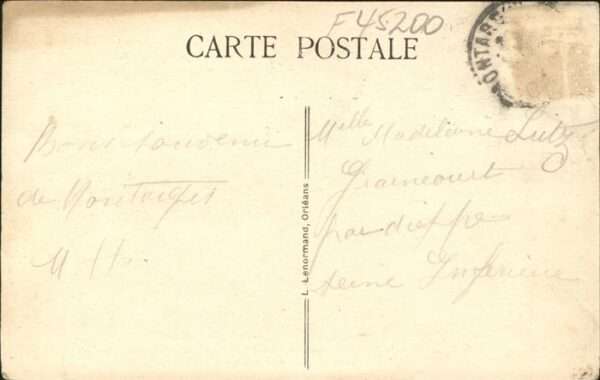 F45200
CARTE POSTALE
MONTARG
Bon souvenir
de Montargis
M. H.
Mlle Madeleine Lutz
Graincourt
par dieppe
seine Inférieure
L. Lenormand, Orléans